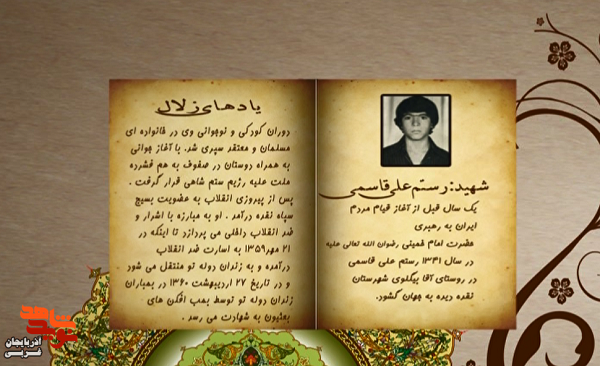 شهید: رستم علی قاسمی
یک سال قبل از آغاز قیام مردم
ایران به رهبری
حضرت امام خمینی رضوان الله تعالی علیه
در سال ۱۳۴۱ رستم علی قاسمی
در روستای آقا بیگلوی شهرستان
نقده دیده به جهان گشود.
یادهای زلال
دوران کودکی و نوجوانی وی در خانواده ای
مسلمان و معتقد سپری شد. با آغاز جوانی
به همراه دوستان در صفوف به هم فشرده
ملت علیه رژیم ستم شاهی قرار گرفت .
پس از پیروزی انقلاب به عضویت بسیج
سپاه نقده درآمد . او به مبارزه با اشرار و
ضد انقلاب داخلی می پردازد تا اینکه در
۲۱ مهر۱۳۵۹ به اسارت ضد انقلاب
درآمده و به زندان دوله تو منتقل می شود
و در تاریخ ۲۷ اردیبهشت ۱۳۶۰ در بمباران
زندان دوله تو توسط بمب افکن های
بعثیون به شهادت می رسد .
نوید شاهد
آذربایجان
غربی